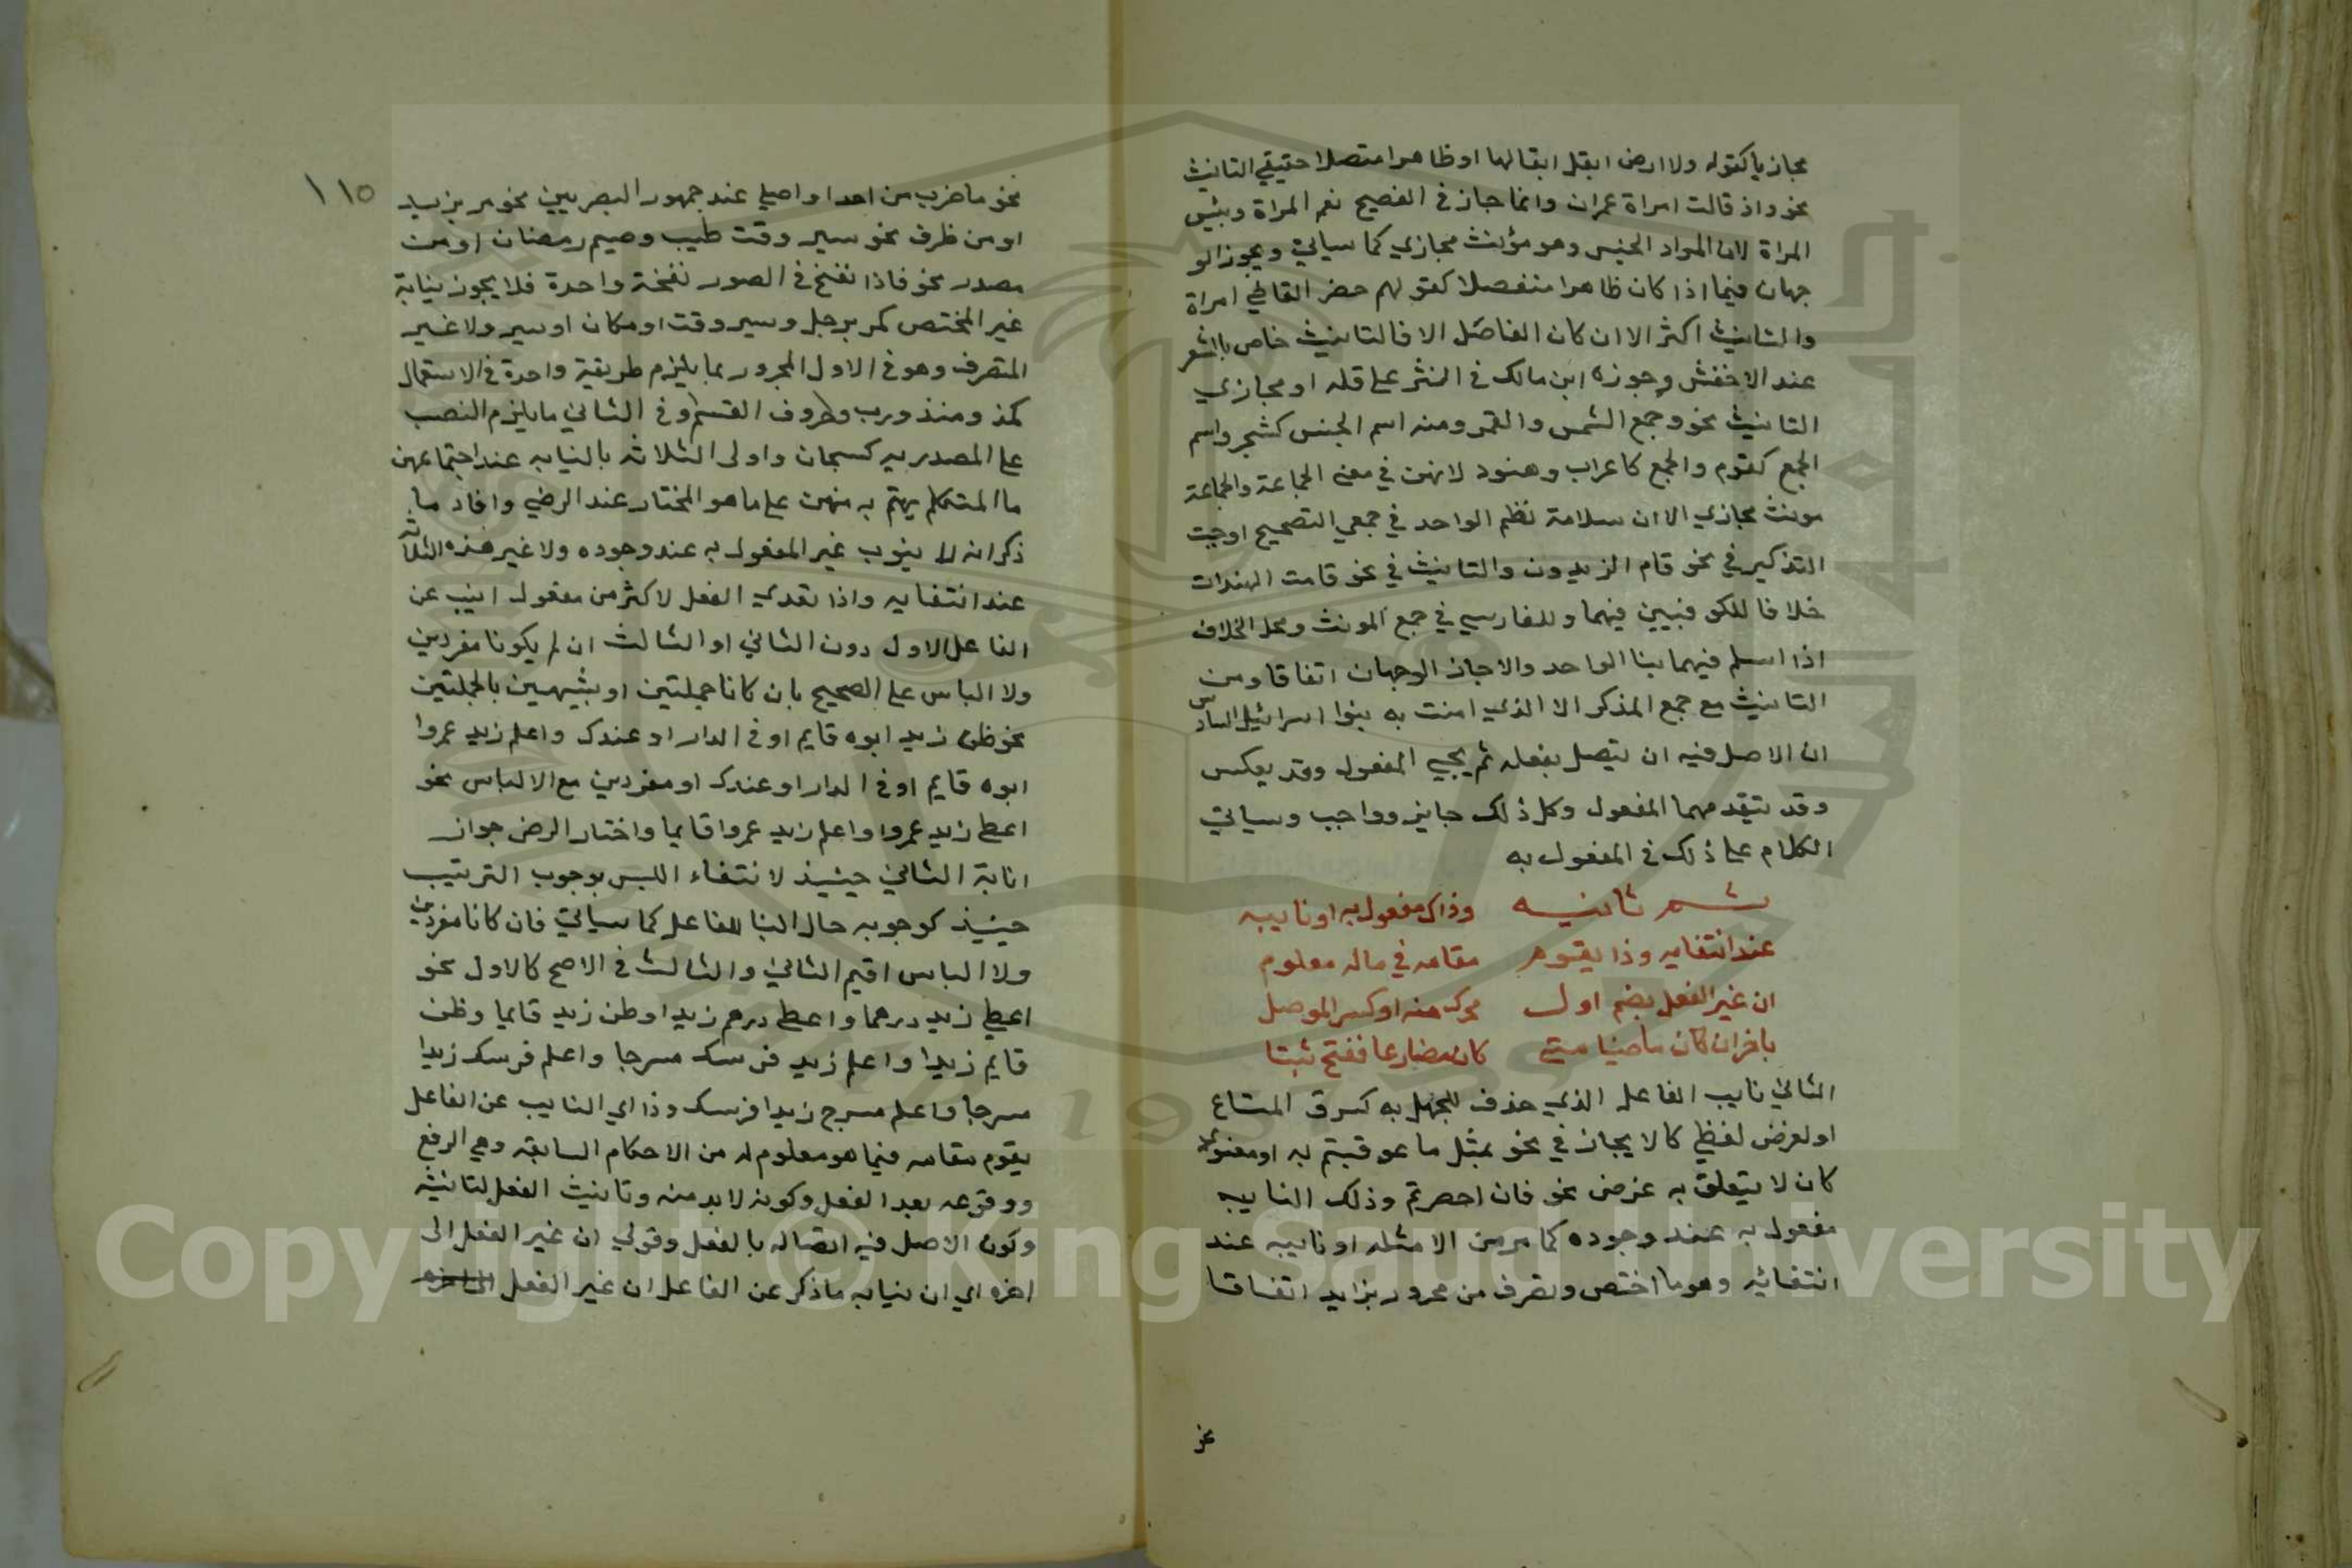 مجازيا كقوله ولا ارض ابقل ابقالها او ظاهرا متصلا حقيقي التانيث
نحو واذ قالت امراة عمران وانما جاز في الفصيح نعم المراة وبئس
المراة لان المراد الجنس وهو مؤنث مجازي كما سياتي ويجوز الو
جهان فيما اذا كان ظاهرا منفصلا كقولهم حضر القاضي امراة
والتانيث اكثر الا ان كان الفاصل الا فالتانيث خاص بالشعر
عند الاخفش وجوزه ابن مالك في النثر على قله او مجازي
التانيث نحو وجمع الشمس والقمر ومنه اسم الجنس كشجر واسم
الجمع كقوم والجمع كاعراب وهنود لانهن في معنى الجماعة والجماعة
مونث مجازي الا ان سلامة نظم الواحد في جمعي التصحيح اوجبت
التذكير في نحو قام الزيدون والتانيث في نحو قامت الهندات
خلافا للكوفيين فيهما وللفارسي في جمع المونث ومحل الخلاف
اذا اسلم فيهما بنا الواحد والا جاز الوجهان اتفاقا ومن
التانيث مع جمع المذكر الا الذي امنت به بنوا اسرائيل السادس
ان الاصل فيه ان يتصل بفعله ثم يجيي المفعول وقد يعكس
وقد يتقدمهما المفعول وكل ذلك جايز وواجب وسياتي
الكلام على ذلك في المفعول به
ثم ثانيه وذاك مفعول به او نايبه
عند انتفايه وذا يقوم مقامه في ماله معلوم
ان غير الفعل بضم اول محرك منه او كسر الموصل
باخر ان كان ماضيا متى كان مضارعا ففتح ثبتا
الثاني نايب الفاعل الذي حذف للجهل به كسرق المتاع
او لغرض لفظي كالايجاز في نحو بمثل ما عوقبتم به او معنوي
كان لا يتعلق به غرض نحو فان احصرتم وذلك النايب
مفعول به عند وجوده كما مر من الامثله او نايبه عند
انتفائه وهو ما اختص وتصرف من مجرور بزايد اتفاقا
نحو
١١٥
نحو ما ضرب من احد او اصلي عند جمهور البصريين نحو مر بزيد
او من ظرف نحو سير وقت طيب وصيم رمضان او من
مصدر نحو فاذا نفخ في الصور نفخة واحدة فلا يجوز نيابة
غير المختص كمر برجل وسير وقت او مكان او سير ولا غير
المتصرف وهو في الاول المجرور بما يلزم طريقة واحدة في الاستعمال
كمذ ومنذ ورب وحروف القسم وفي الثاني ما يلزم النصب
على المصدريه كسبحان واولى الثلاثه بالنيابه عند اجتماعهن
ما المتكلم يهتم به منهن على ما هو المختار عند الرضي وافاد ما
ذكر انه لا ينوب غير المفعول به عند وجوده ولا غير هذه الثلاثه
عند انتفايه واذا تعدي الفعل لاكثر من مفعول انيب عن
الفاعل الاول دون الثاني او الثالث ان لم يكونا مفردين
ولا الباس على الصحيح بان كانا جملتين او شبيهين بالجملتين
نحو ظن زيد ابوه قايم او في الدار او عندك واعلم زيد عمروا
ابوه قايم او في الدار او عندك او مفردين مع الالباس نحو
اعطي زيد عمروا واعلم زيد عمروا قايما واختار الرضى جواز
انابة الثاني حينيذ لانتفاء اللبس بوجوب الترتيب
حينيذ كوجوبه حال البنا للفاعل كما سياتي فان كانا مفردين
ولا الباس اقيم الثاني والثالث في الاصح كالاول نحو
اعطي زيد درهما واعطي درهم زيدا وظن زيد قايما وظن
قايم زيدا واعلم زيد فرسك مسرجا واعلم فرسك زيدا
مسرجا واعلم مسرج زيدا فرسك وذا اي النايب عن الفاعل
يقوم مقامه فيما هو معلوم له من الاحكام السابقه وهي الرفع
ووقوعه بعد الفعل وكونه لا بد منه وتانيث الفعل لتانيثه
وكون الاصل فيه اتصاله بالفعل وقولي ان غير الفعل الى
اخره اي ان نيابه ما ذكر عن الفاعل ان غير الفعل الى اخره
Copyright © King Saud University